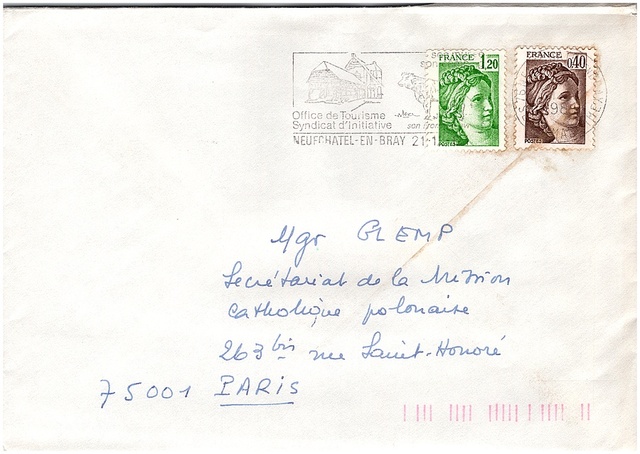 FRANCE
1,20
FRANCE
0,40
Office de Tourisme
Syndicat d'Initiative
son
NEUFCHATEL-EN-BRAY 21-1
Mgr GLEMP
Secrétariat de la Mission
catholique polonaise
263 bis rue Saint-Honoré
75001 PARIS